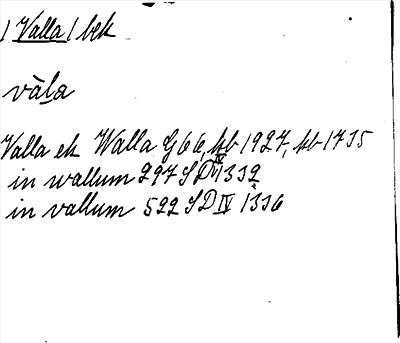 1 Valla 1 bek
väla
Valla ek Walla G66, kb 1927, kb 1735
in wallum 297 SD IV 1332
in vallum 522 SD IV 1336